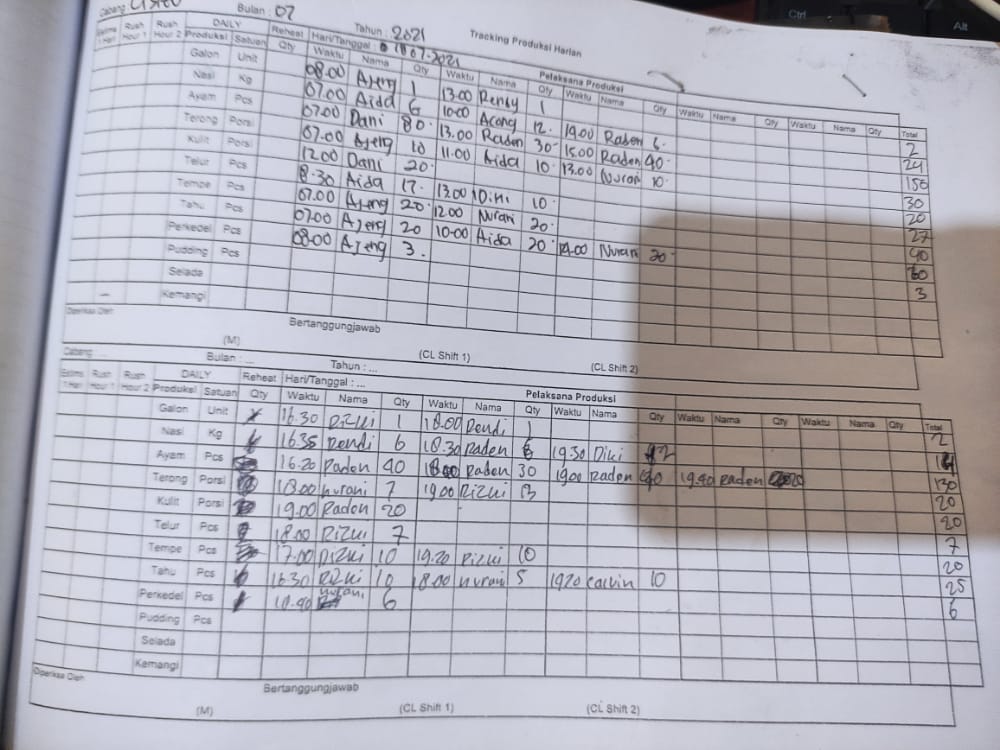 Ctrl
Alt
Cabang Bulan : 07 Tahun : 2021 Tracking Produksi Harian
Estima 1 Hari Rush Hour 1 Rush Hour 2 DAILY Reheat Hari/Tanggal : 07-2021 Pelaksana Produksi
Produksi Satuan Qty Waktu Nama Qty Waktu Nama Qty Waktu Nama Qty Waktu Nama Qty Waktu Nama Qty Total
Galon Unit 08.00 Ajeng 1 13.00 Rendy 1 2
Nasi Kg 07.00 Aida 6 10.00 Acong 12. 19.00 Raden 6. 24
Ayam Pcs 07.00 Dani 80. 13.00 Raden 30. 15.00 Raden 40. 150
Terong Porsi 07.00 Ajeng 10 11.00 Aida 10. 13.00 Nurani 10. 30
Kulit Porsi 12.00 Dani 20. 20
Telur Pcs 8.30 Aida 17. 13.00 Dini 10. 27
Tempe Pcs 07.00 Ajeng 20. 12.00 Nurani 20. 40
Tahu Pcs 07.00 Ajeng 20 10.00 Aida 20. 14.00 Nurani 20. 60
Perkedel Pcs 08.00 Ajeng 3. 3
Pudding Pcs
Selada
Kemangi
Diperiksa Oleh Bertanggungjawab
(M) (CL Shift 1) (CL Shift 2)
Cabang ... Bulan : ... Tahun : ...
Estima 1 Hari Rush Hour 1 Rush Hour 2 DAILY Reheat Hari/Tanggal : ... Pelaksana Produksi
Produksi Satuan Qty Waktu Nama Qty Waktu Nama Qty Waktu Nama Qty Waktu Nama Qty Waktu Nama Qty Total
Galon Unit 16.30 Rizki 1 18.00 Rendi 1 2
Nasi Kg 16.35 Rendi 6 18.30 Raden 6 19.30 Diki
Ayam Pcs 16.20 Raden 40 Raden 30 19.00 Raden 40 19.40 Raden 20 130
Terong Porsi 18.00 nurani 7 19.00 Rizki 13 20
Kulit Porsi 19.00 Raden 20 20
Telur Pcs 18.00 Rizki 7 7
Tempe Pcs 17.00 Rizki 10 19.20 Rizki 10 20
Tahu Pcs 16.30 Rizki 10 18.00 nurani 5 19.20 calvin 10 25
Perkedel Pcs nurani 6 6
Pudding Pcs
Selada
Kemangi
Diperiksa Oleh Bertanggungjawab
(M) (CL Shift 1) (CL Shift 2)